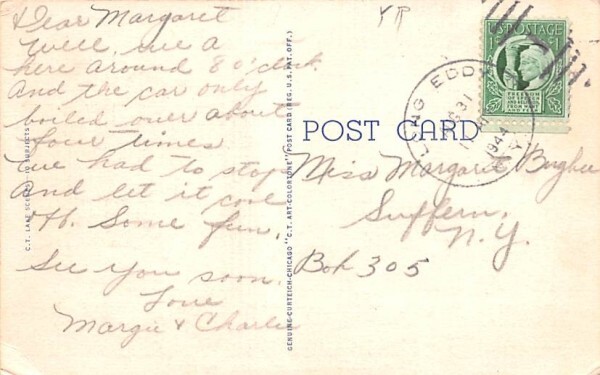 Dear Margaret
Well, we a
here around 8 o'clock.
And the car only
boiled over about
four times
we had to stop
And let it cool
off. Some fun.
See you soon.
Love
Margie & Charlie
C.T. LAKE SCENES (10 SUBJECTS)
GENUINE CURTEICH-CHICAGO "C.T. ART-COLORTONE" POST CARD (REG. U.S. PAT. OFF.)
POST CARD
LONG EDDY
31
1944
N.Y.
U.S. POSTAGE
1¢ 1¢
FREEDOM
OF SPEECH
AND RELIGION
FROM WANT
AND FEAR
Miss Margaret
Suffern,
N.Y.
Box 305